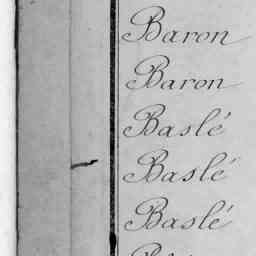 Baron
Baron
Baslé
Baslé
Baslé